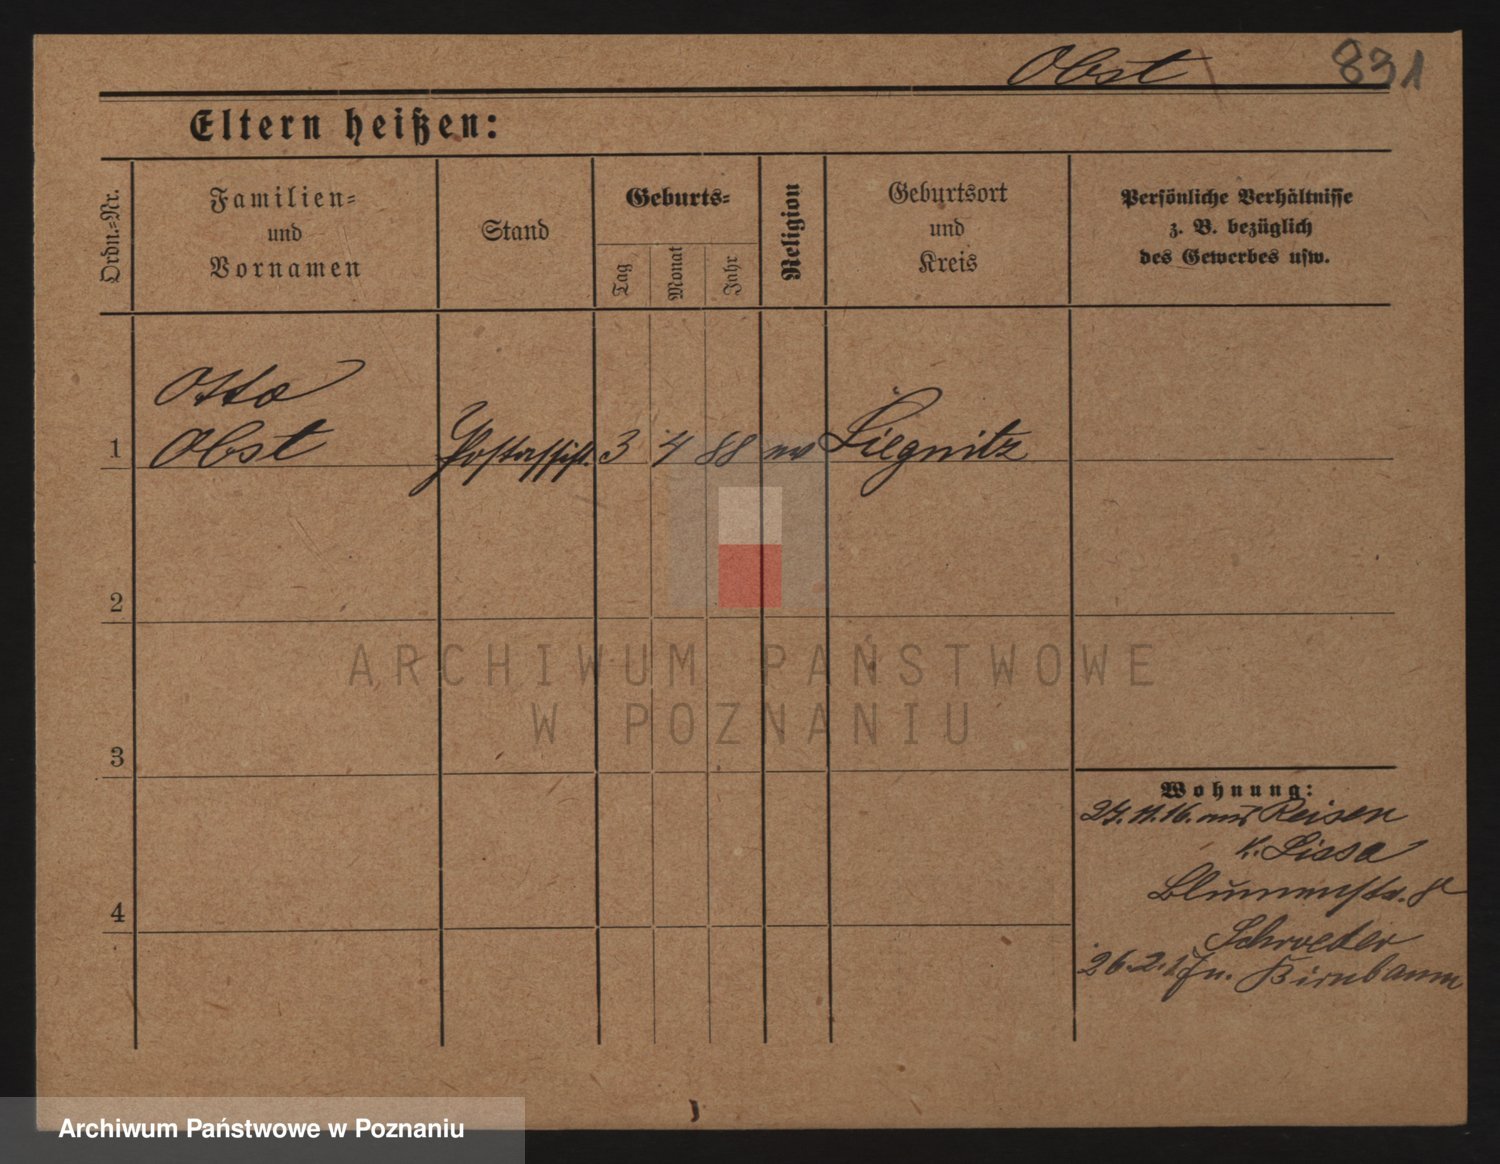 Obst 831
Eltern heißen:
Ordn.-Nr.
Familien-
und
Vornamen
Stand
Geburts-
Tag
Monat
Jahr
Religion
Geburtsort
und
Kreis
Persönliche Verhältnisse
z. B. bezüglich
des Gewerbes usw.
Otto
1 Obst Postassist. 3 4 88 ev Liegnitz
2
3
4
Wohnung:
27.11.16. aus Reisen
K. Lissa
Blumenstr. 8
Schroeder
26.2.17 n. Birnbaum
ARCHIWUM PAŃSTWOWE
W POZNANIU
Archiwum Państwowe w Poznaniu